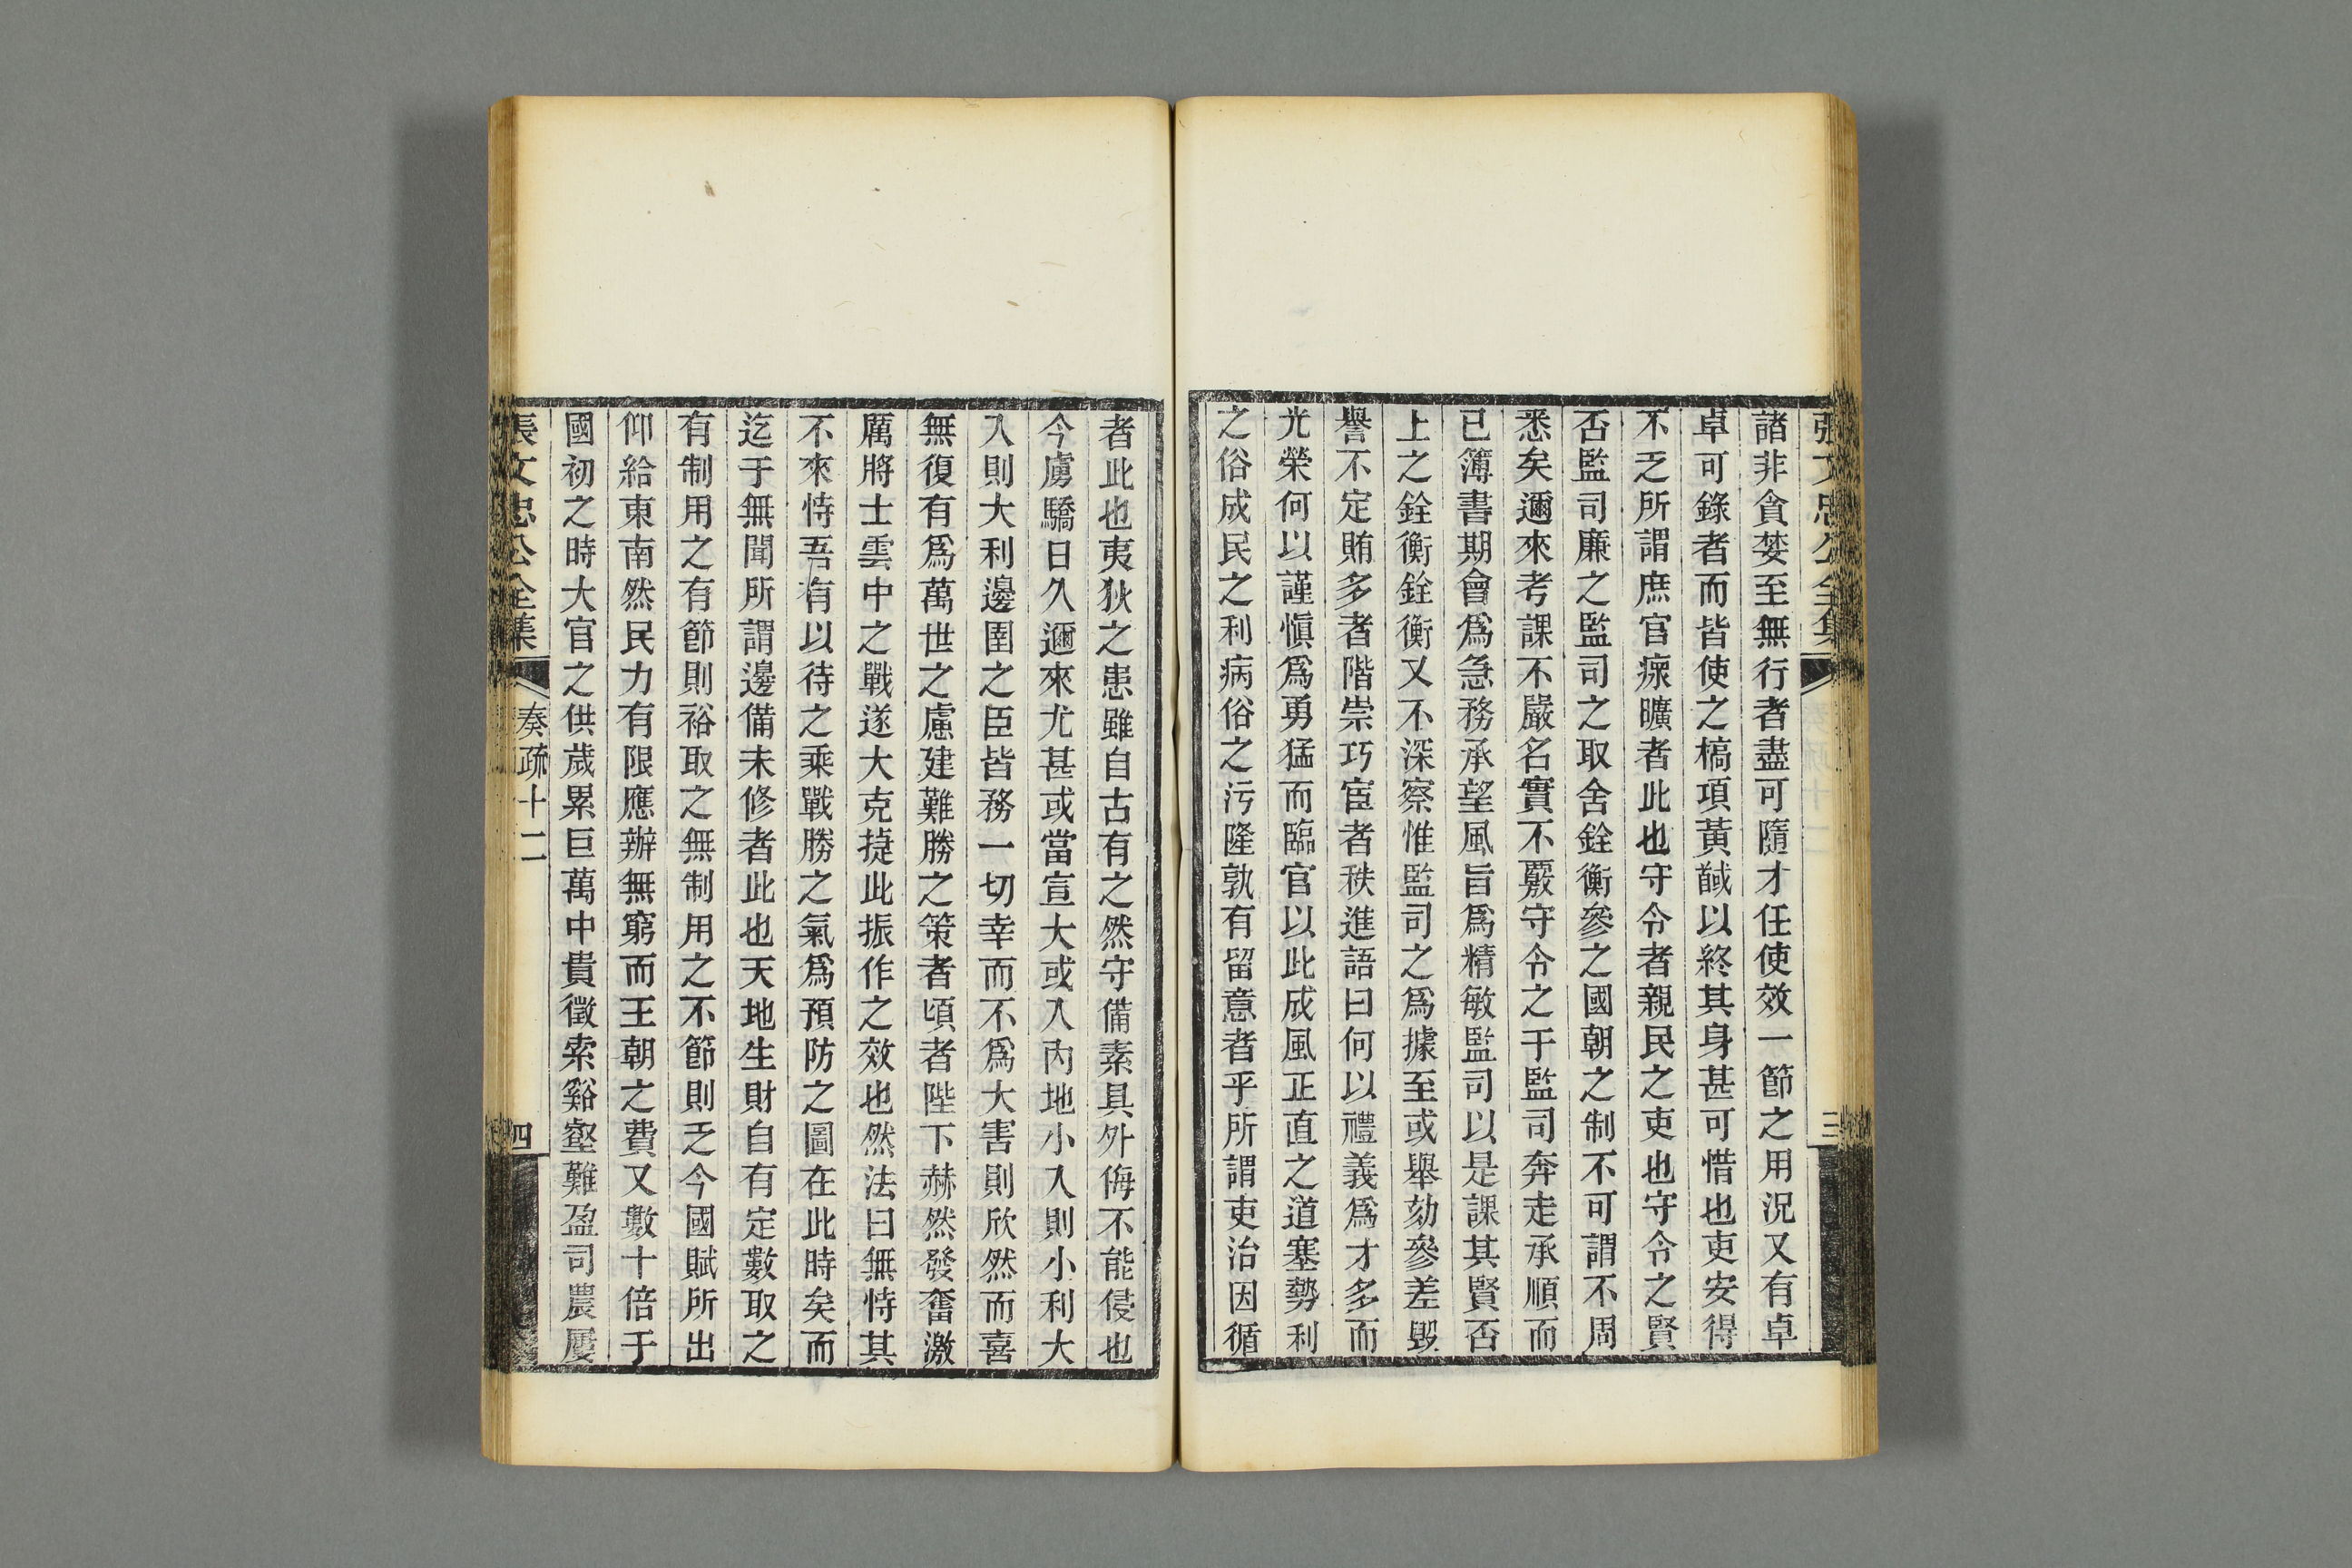 張文忠公全集
三
諸非貪婪至無行者盡可隨才任使效一節之用況又有卓
卓可錄者而皆使之槁項黃馘以終其身甚可惜也吏安得
不乏所謂庶官瘝曠者此也守令者親民之吏也守令之賢
否監司廉之監司之取舍銓衡參之國朝之制不可謂不周
悉矣邇來考課不嚴名實不覈守令之于監司奔走承順而
已簿書期會爲急務承望風旨爲精敏監司以是課其賢否
上之銓衡銓衡又不深察惟監司之爲據至或舉劾參差毀
譽不定賄多者階崇巧宦者秩進語曰何以禮義爲才多而
光榮何以謹愼爲勇猛而臨官以此成風正直之道塞勢利
之俗成民之利病俗之污隆孰有留意者乎所謂吏治因循
者此也夷狄之患雖自古有之然守備素具外侮不能侵也
今虜驕日久邇來尤甚或當宣大或入內地小入則小利大
入則大利邊圉之臣皆務一切幸而不爲大害則欣然而喜
無復有爲萬世之慮建難勝之策者頃者陛下赫然發奮激
厲將士雲中之戰遂大克捷此振作之效也然法曰無恃其
不來恃吾有以待之乘戰勝之氣爲預防之圖在此時矣而
迄于無聞所謂邊備未修者此也天地生財自有定數取之
有制用之有節則裕取之無制用之不節則乏今國賦所出
仰給東南然民力有限應辦無窮而王朝之費又數十倍于
國初之時大官之供歲累巨萬中貴徵索谿壑難盈司農屢
張文忠公全集
奏疏十二
四